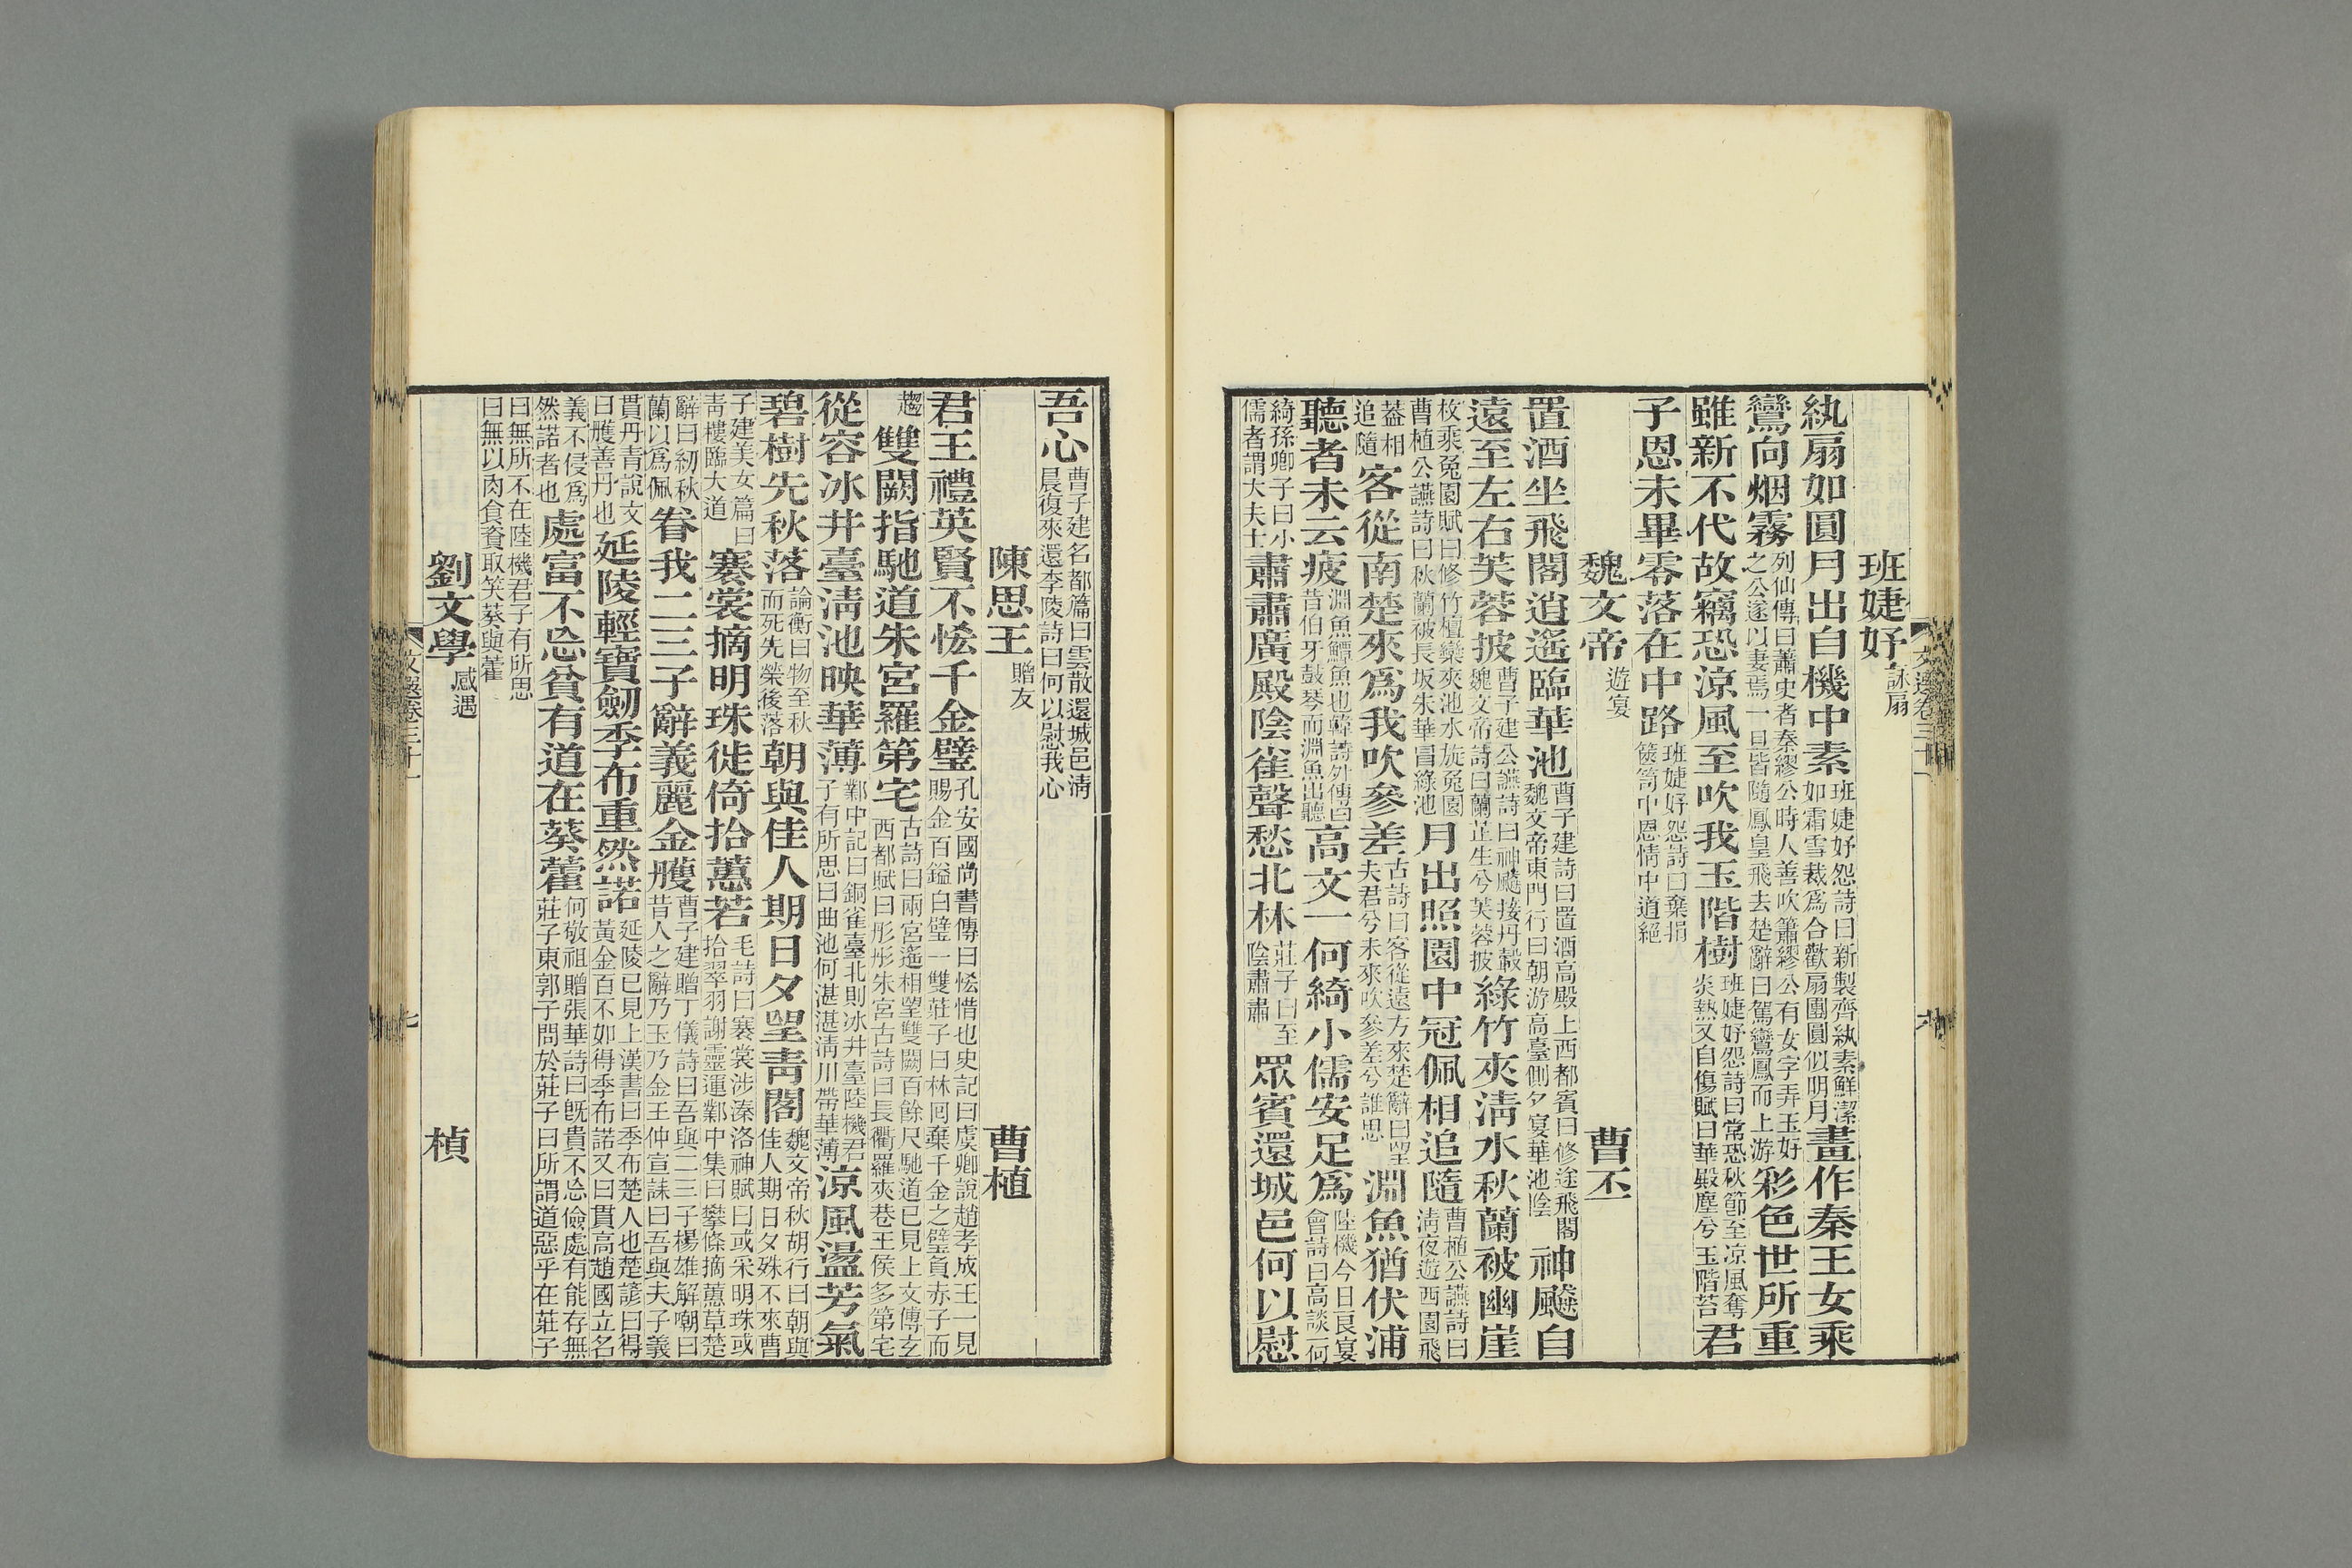 班婕妤詠扇
紈扇如圓月出自機中素班婕妤怨詩曰新製齊紈素鮮潔如霜雪裁爲合歡扇團圓似明月畫作秦王女乘
鸞向烟霧列仙傳曰蕭史者秦繆公時人善吹簫繆公有女字弄玉好之公遂以妻焉一旦皆隨鳳皇飛去楚辭曰駕鸞鳳而上游彩色世所重
雖新不代故竊恐涼風至吹我玉階樹班婕妤怨詩曰常恐秋節至涼風奪炎熱又自傷賦曰華殿塵兮玉階苔君
子恩未畢零落在中路班婕妤怨詩曰棄捐篋笥中恩情中道絕
魏文帝遊宴 曹丕
置酒坐飛閣逍遙臨華池曹子建詩曰置酒高殿上西都賓曰修途飛閣魏文帝東門行曰朝游高臺側夕宴華池陰神飈自
遠至左右芙蓉披曹子建公讌詩曰神飈接丹轂魏文帝詩曰蘭芷生兮芙蓉披綠竹夾淸水秋蘭被幽崖
枚乘兔園賦曰修竹檀欒夾池水旋兔園曹植公讌詩曰秋蘭被長坂朱華冒綠池月出照園中冠佩相追隨曹植公讌詩曰淸夜遊西園飛
蓋相追隨客從南楚來爲我吹參差古詩曰客從遠方來楚辭曰望夫君兮未來吹參差兮誰思淵魚猶伏浦
聽者未云疲淵魚鱏魚也韓詩外傳曰昔伯牙鼓琴而淵魚出聽高文一何綺小儒安足爲陸機今日良宴會詩曰高談一何
綺孫卿子曰小儒者謂大夫士肅肅廣殿陰雀聲愁北林莊子曰至陰肅肅眾賓還城邑何以慰
文選卷三十一 六
吾心曹子建名都篇曰雲散還城邑淸晨復來還李陵詩曰何以慰我心
陳思王贈友 曹植
君王禮英賢不恡千金璧孔安國尚書傳曰恡惜也史記曰虞卿說趙孝成王一見賜金百鎰白璧一雙莊子曰林回棄千金之璧負赤子而
趨雙闕指馳道朱宮羅第宅古詩曰兩宮遙相望雙闕百餘尺馳道已見上文傳玄西都賦曰彤彤朱宮古詩曰長衢羅夾巷王侯多第宅
從容冰井臺淸池映華薄鄴中記曰銅雀臺北則冰井臺陸機君子有所思曰曲池何湛湛淸川帶華薄涼風盪芳氣
碧樹先秋落論衡曰物至秋而死先榮後落朝與佳人期日夕望靑閣魏文帝秋胡行曰朝與佳人期日夕殊不來曹
子建美女篇曰靑樓臨大道褰裳摘明珠徙倚拾蕙若毛詩曰褰裳涉溱洛神賦曰或采明珠或拾翠羽謝靈運鄴中集曰攀條摘蕙草楚
辭曰紉秋蘭以爲佩眷我二三子辭義麗金雘曹子建贈丁儀詩曰吾與二三子楊雄解嘲曰昔人之辭乃玉乃金王仲宣誄曰吾與夫子義
貫丹靑說文曰雘善丹也延陵輕寶劒季布重然諾延陵已見上漢書曰季布楚人也楚諺曰得黃金百不如得季布諾又曰貫高趙國立名
義不侵爲然諾者也處富不忘貧有道在葵藿何敬祖贈張華詩曰旣貴不忘儉處有能存無莊子東郭子問於莊子曰所謂道惡乎在莊子
曰無所不在陸機君子有所思曰無以肉食資取笑葵與藿
劉文學感遇 楨
文選卷三十一 七